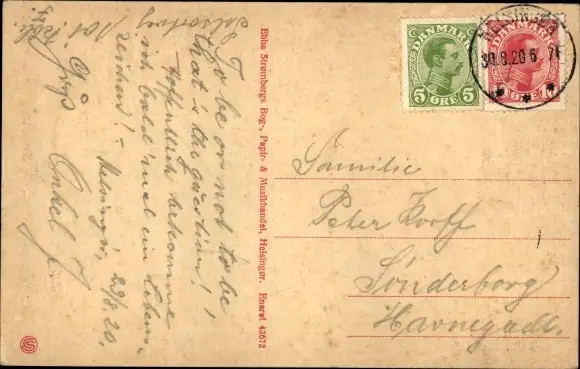 To be or not to be,
that is the question!
Hoffentlich bekomme
ich bald mal ein Lebens-
zeichen! – Helsingör, 29/8.20.
Gruß
Onkel J.
Ebba Strømbergs Bog-, Papir- & Musikhandel, Helsingør. Eneret 43672
DANMARK
5 ØRE 5
DANMARK
ØRE
HELSINGØR
30.8.20 6
Familie
Peter Korff
Sönderborg
Havnegade.
S